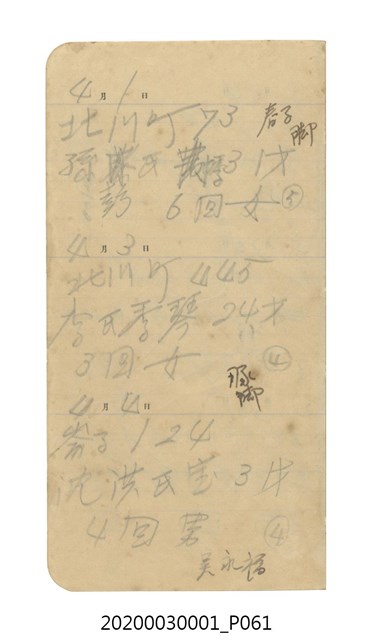 4月1日
北川町73
春子
脚
氏 31才
6回女 ⑤
4月3日
北川町445
李氏季琴 24才
3回女 ④
脚
4月4日
崙子124
沈洪氏宝 3 才
4回男 ④
吴永福
20200030001_P061